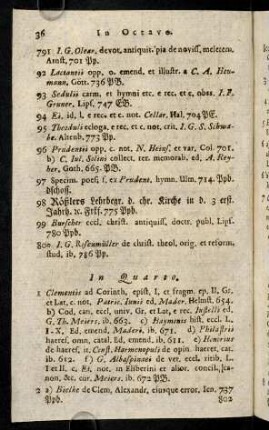 36 In Octavo.
791 I. G. Olear. devot. antiquit. pia de novissi. meletem.
Arnst. 701 Pp.
92 Lactantii opp. o. emend. et illustr. a C. A. Heu-
mann. Gött. 736 PB.
93 Sedulii carm. et hymni etc. e rec. et c. obss. I. F.
Gruner. Lips. 747 EB.
94 Ei. id. l. e rec. et c. not. Cellar. Hal. 704 PE.
95 Theoduli ecloga. e rec. et c. not. crit. I. G. S. Schwa-
be. Altenb. 773 Pp.
96 Prudentii opp. c. not. N. Heinsi, et var, Col. 701.
b) C. Iul. Solini collect. rer. memorab. ed, A. Rey-
her, Goth. 665. PB.
97 Specim. poes. s. ex Prudent. hymn. Ulm. 714. Ppb.
dschoff.
98 Rößlers Lehrbegr. d. chr. Kirche in d. 3 erst.
Jahrh. ic. Frkf. 775 Ppb.
99 Burscher eccl. christ. antiquiss. doctr. publ. Lips.
780 Ppb.
800 I. G. Rosenmüller de christ. theol. orig. et reform.
stud. ib. 786 Pp.
In Quarto.
1 Clementis ad Corinth. epist. I. et fragm. ep. II. Gr.
et Lat. c. not. Patric. Iunii ed, Mader. Helmst. 654.
b) Cod. can. eccl. univ. Gr. et Lat. e rec. Iustelli ed.
G. Th. Meiers. ib. 663. c) Haymonis hist. eccl. L.
I-X. Ed, emend. Maderi. ib. 671. d) Philastrii
haeres. omn. catal. Ed, emend. ib. 611. e) Honorius
de haeres. it. Const. Harmenopuli de opin. haeret. cat.
ib. 612. f) G. Albaspinaei de ver. eccl. ritib. L.
I et II. c. Ei. not. in Eliberini et alior. concil.
can. &c. cur. Meiers. ib. 672 PB.
2 a) Bielke de Clem. Alexandr. eiusque error. Ien. 737
Ppb. 802